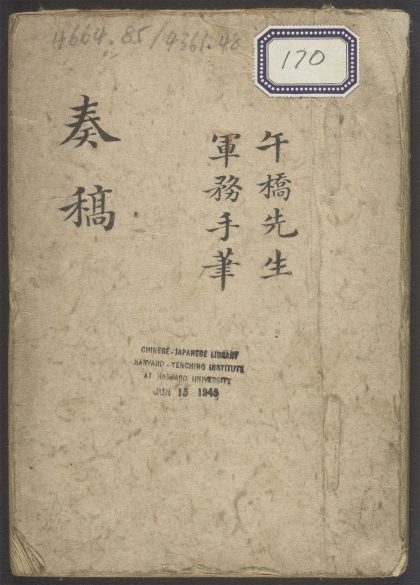 4664.85/4361.48
170
午橋先生
軍務手筆
奏稿
CHINESE-JAPANESE LIBRARY
HARVARD-YENCHING INSTITUTE
AT HARVARD UNIVERSITY
JUN 15 1949